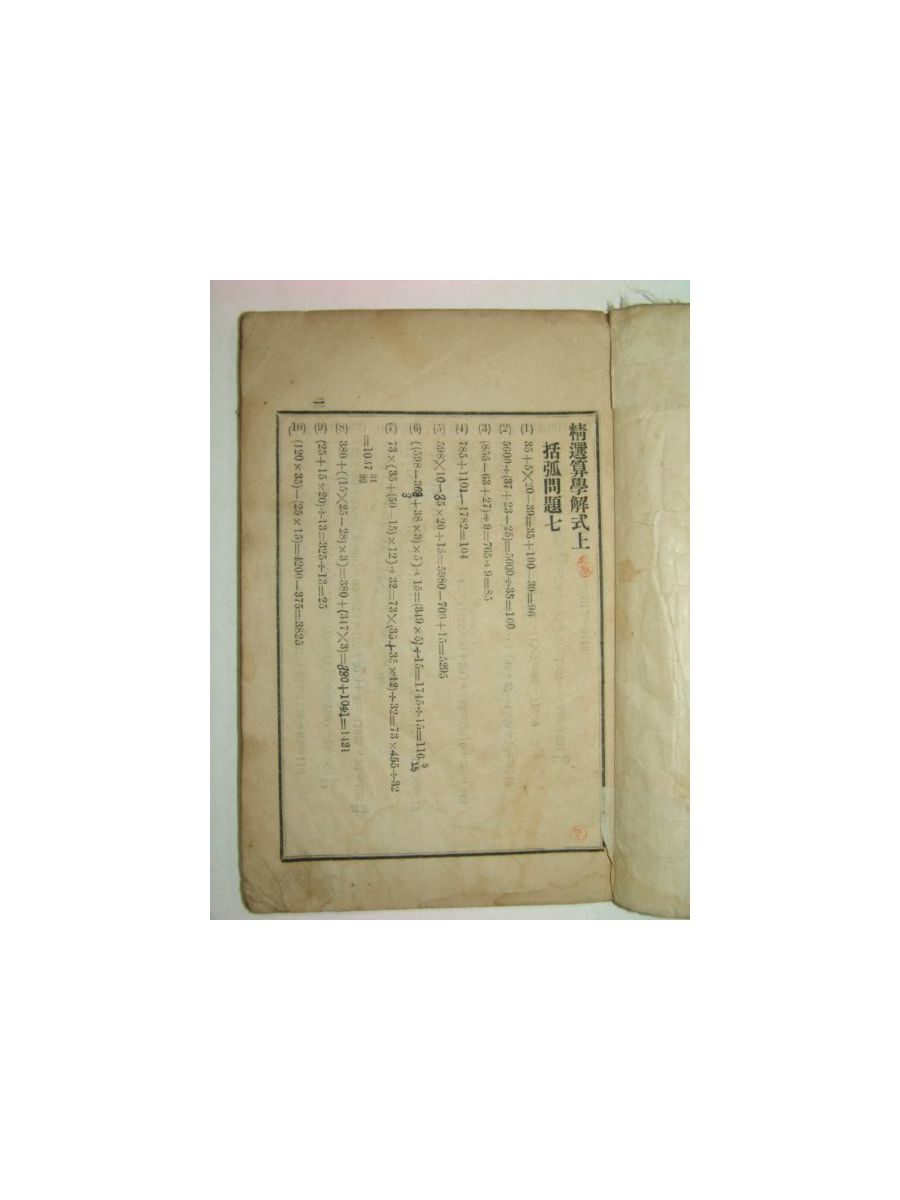 精選算學解式上
括弧問題七
(1) 35+5×20-39=35+100-39=96
(2) 5600÷(37+23-25)=5600÷35=160
(3) (855-63+27)÷9=765÷9=85
(4) 785+1101-1782=104
(5) 598×10-35×20+15=5980-700+15=5295
(6) {(598-363+38×3)×5}÷15=(349×5)÷15=1745÷15=116 5/15
(7) 73×{35+(50-15)×12}÷32=73×(35+35×12)÷32=73×455÷32
=1037 31/32
(8) 380+{(15×25-28)×3}=380+(347×3)=380+1041=1421
(9) (25+15×20)÷13=325÷13=25
(10) (120×35)-(25×15)=4200-375=3825
二